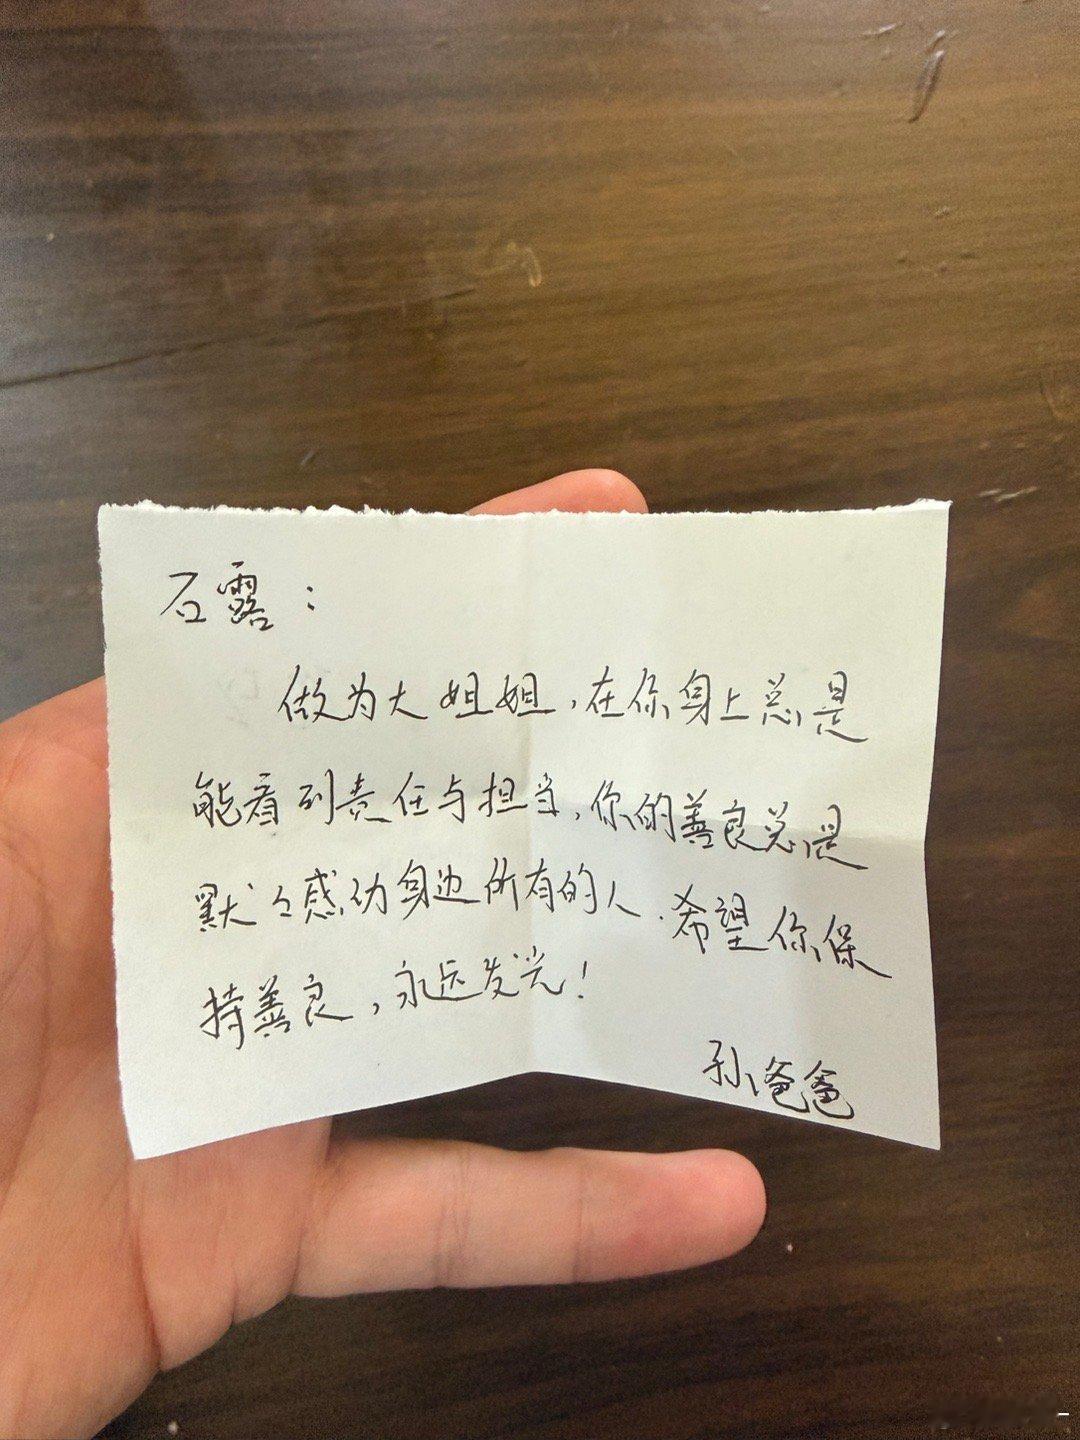 石露：
做为大姐姐，在你身上总是
能看到责任与担当，你的善良总是
默々感动身边所有的人．希望你保
持善良，永远发光！
孙爸爸